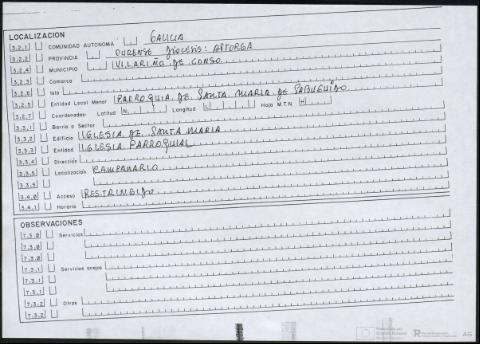 LOCALIZACION
3.2.1 COMUNIDAD AUTONOMA GALICIA
3.2.2 PROVINCIA OURENSE DIOCESIS: ASTORGA
3.2.4 MUNICIPIO VILARIÑO DE CONSO
3.2.3 Comarca
3.2.6 Isla
3.2.5 Entidad Local Menor PARROQUIA DE SANTA MARIA DE SABUGUIDO
3.2.7 Coordenadas Latitud Longitud Hoja M.T.N.
3.3.1 Barrio o Sector
3.3.2 Edificio IGLESIA DE SANTA MARIA
3.3.3 Entidad IGLESIA PARROQUIAL
3.5.4 Dirección
3.3.5 Localización CAMPANARIO
3.3.6
3.4.0 Acceso RESTRINGIDO
3.4.1 Horario
OBSERVACIONES
7.3.0 Servicios
7.3.0
7.3.0
7.3.1 Servicios anejos
7.3.1
7.3.1
7.3.2 Otros
7.3.2